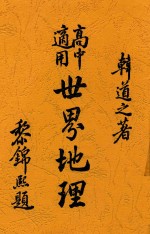 韓道之著
高中
適用
世界地理
黎錦熙題